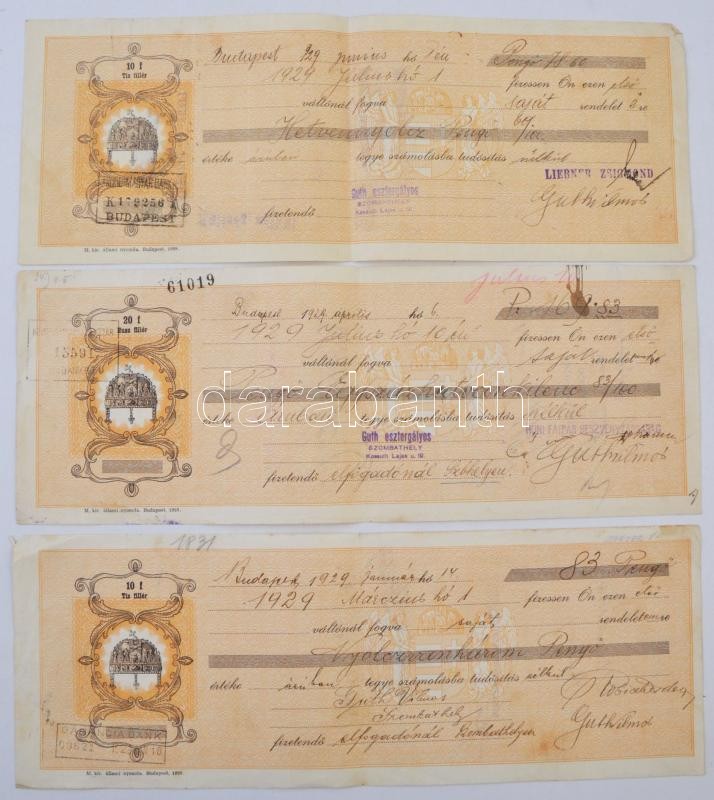 10 f
Tíz fillér
Budapest 929 junius hó
Pengő 78.60
1929 Julius hó 1
fizessen Ön ezen első
váltónál fogva saját rendelet
Hetvennyolcz Pengő 60/100
értéke áruban tegye számolásba tudósítás nélkül
LIEBNER ZSIGMOND
K 179256
BUDAPEST
Guth esztergályos
SZOMBATHELY
Kossuth Lajos u. 19.
Guth Vilmos
fizetendő
M. kir. állami nyomda. Budapest, 1928.
61019
julius
20 f
Husz fillér
Budapest 1929 aprilis hó 6.
1929 Julius hó 10 én
fizessen Ön ezen első
13591
váltónál fogva saját rendelet
83/100
értéke áruban tegye számolásba tudósítás nélkül
Guth esztergályos
SZOMBATHELY
Kossuth Lajos u. 19.
Guth Vilmos
fizetendő elfogadónál Szbthelyen.
M. kir. állami nyomda. Budapest, 1928.
1831
10 f
Tíz fillér
Budapest, 1929 Január hó 14
83 Pengő
1929 Márczius hó 1
fizessen Ön ezen első
váltónál fogva saját rendelet
Nyolczvanhárom Pengő
értéke áruban tegye számolásba tudósítás nélkül
Guth Vilmos
Szombathely
GARANCIA BANK
Guth Vilmos
fizetendő elfogadónál Szombathelyen
M. kir. állami nyomda. Budapest, 1928.
darabanth